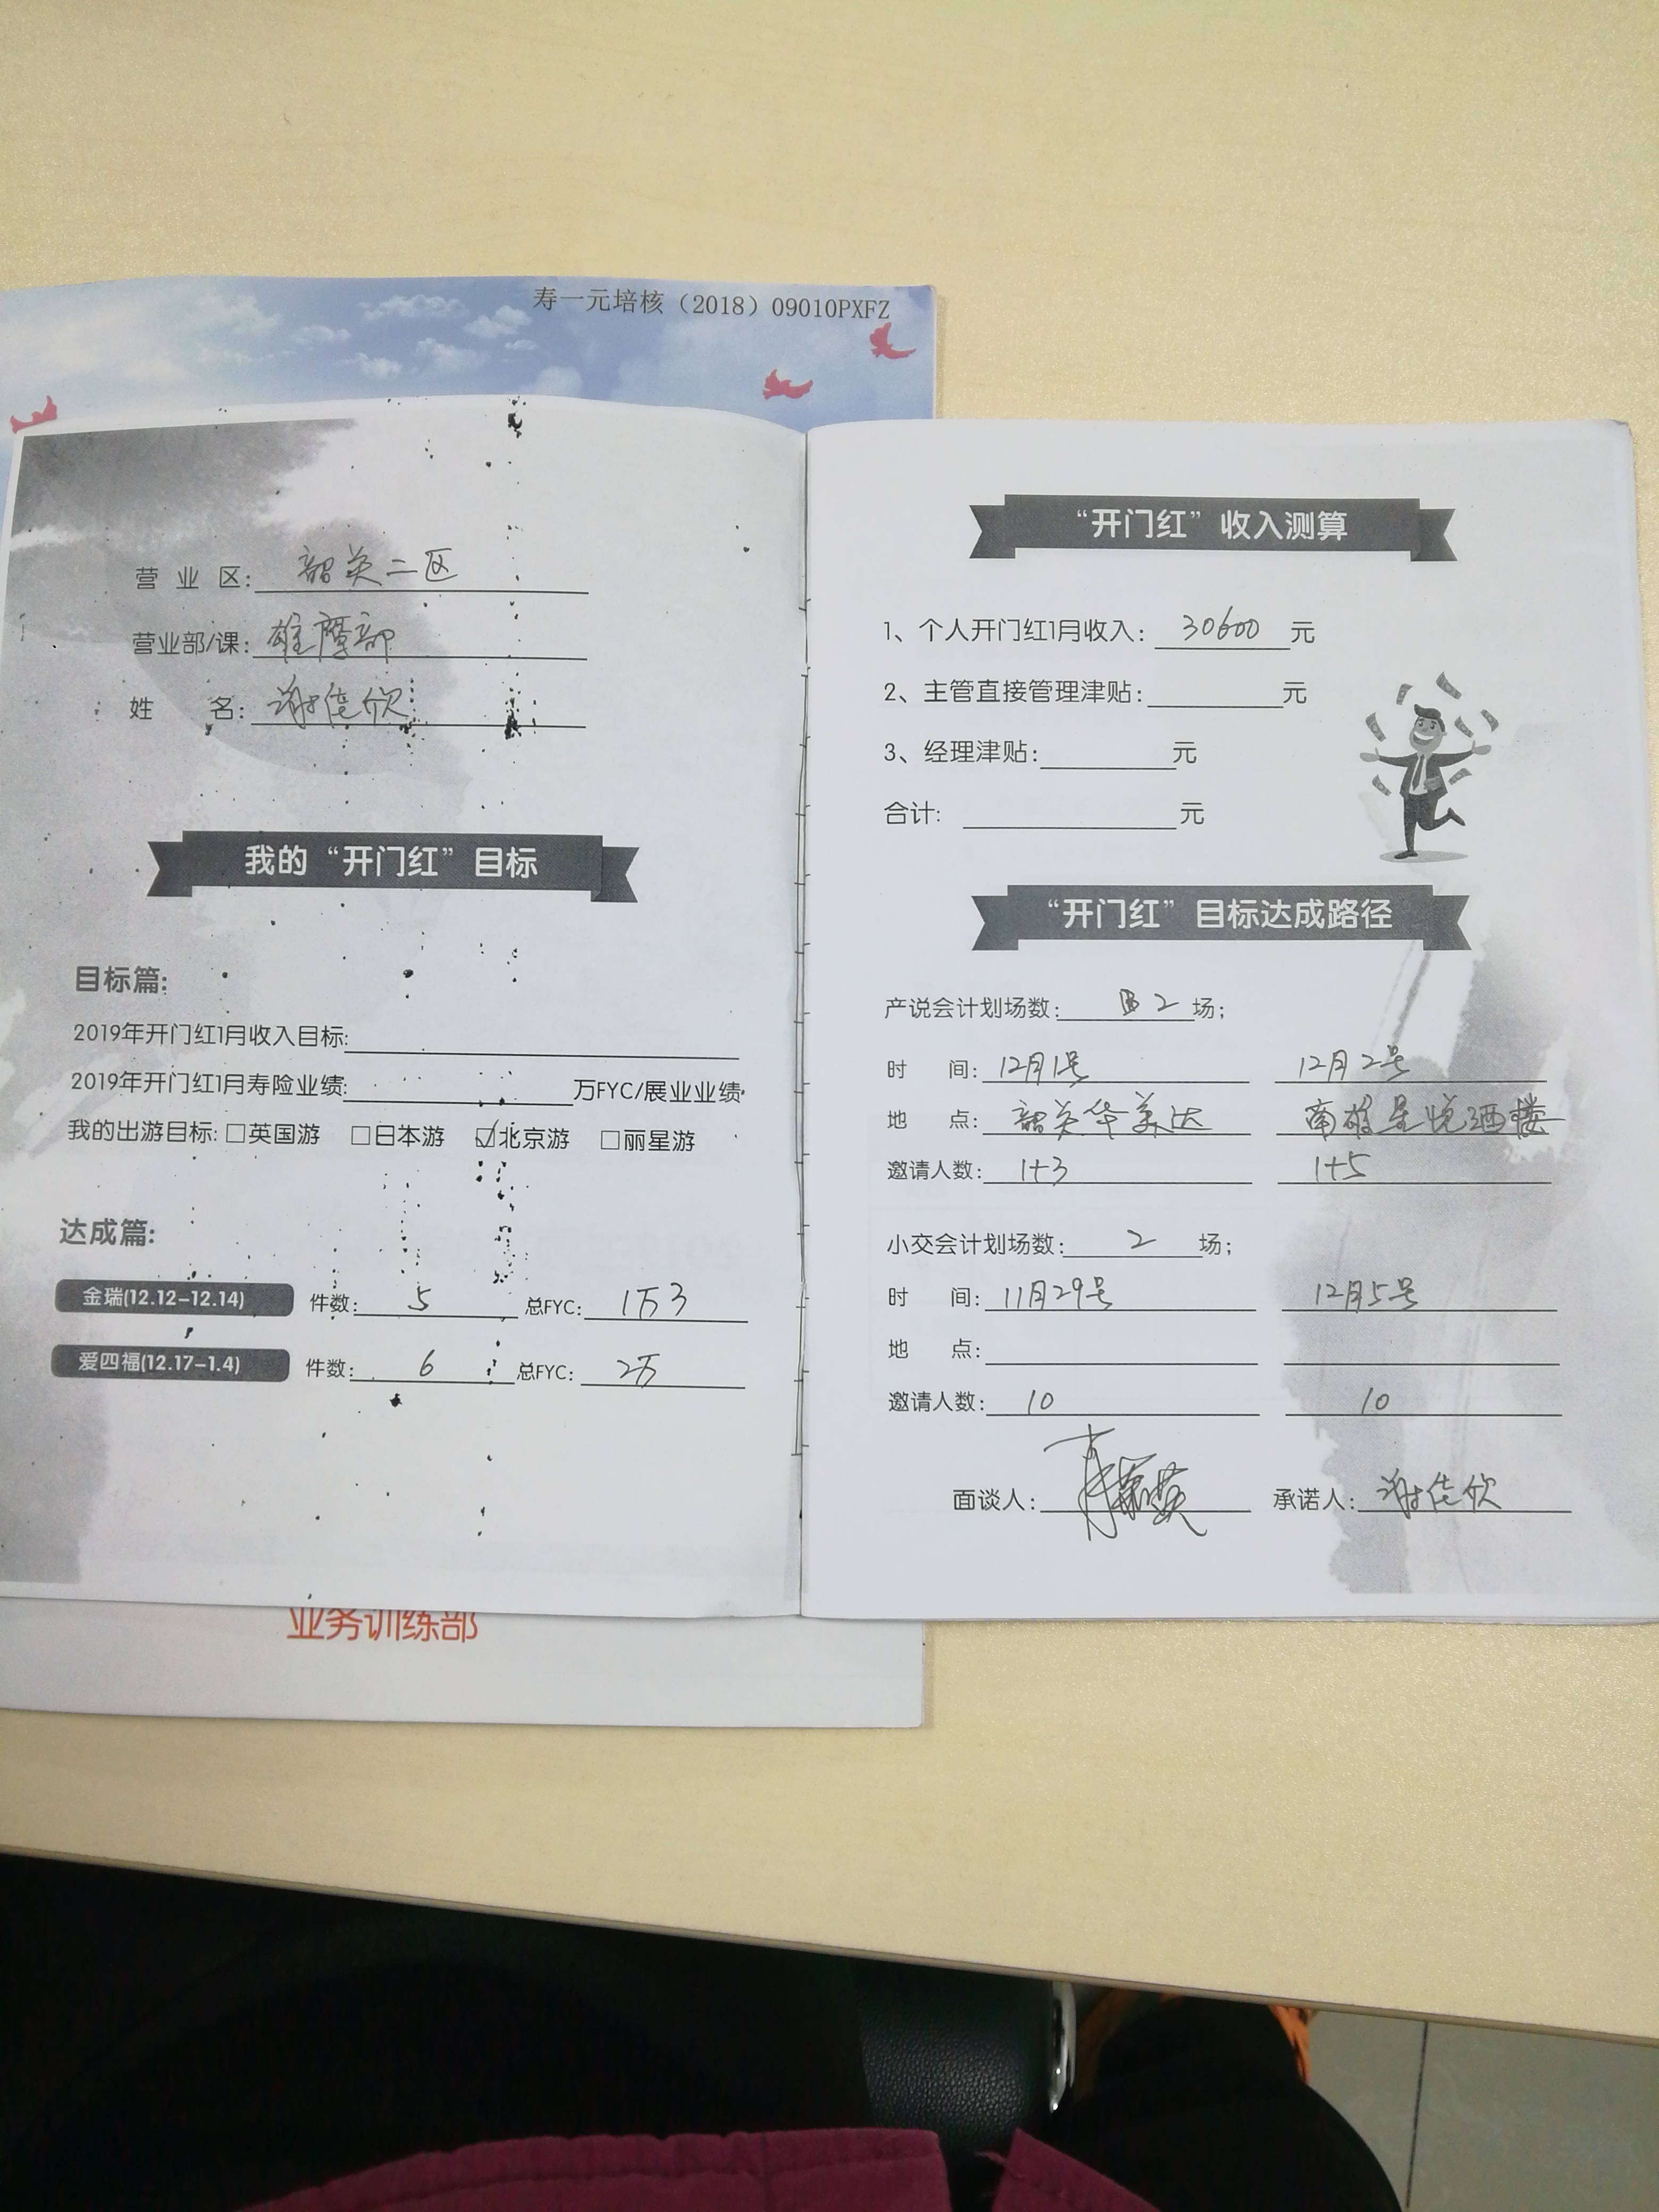 寿一元培核（2018）09010PXFZ
营 业 区: 韶关二区
营业部/课: 雄鹰部
姓 名: 谢佳欣
我的“开门红”目标
目标篇:
2019年开门红1月收入目标:
2019年开门红1月寿险业绩: 万FYC/展业业绩
我的出游目标: □英国游 □日本游 ☑北京游 □丽星游
达成篇:
金瑞(12.12-12.14) 件数: 5 总FYC: 1万3
爱四福(12.17-1.4) 件数: 6 总FYC: 2万
业务训练部
“开门红”收入测算
1、个人开门红1月收入: 30600 元
2、主管直接管理津贴: 元
3、经理津贴: 元
合计: 元
“开门红”目标达成路径
产说会计划场数: 2 场;
时 间: 12月1号 12月2号
地 点: 韶关华美达 南雄星悦酒楼
邀请人数: 1+3 1+5
小交会计划场数: 2 场;
时 间: 11月29号 12月5号
地 点:
邀请人数: 10 10
面谈人: 承诺人: 谢佳欣